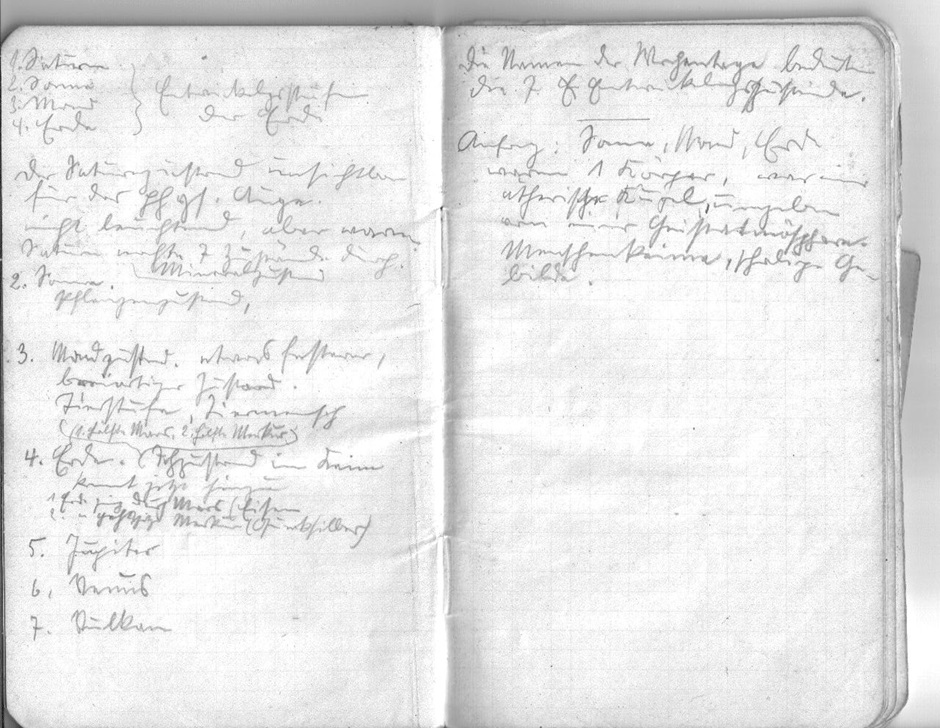 1. Saturn
2. Sonne
3. Mond
4. Erde
Entwicklgsstufen
der Erde
Der Saturnzustand unsichtbar
für das phys. Auge.
nicht leuchtend, aber warm.
Saturn machte 7 Zustände durch.
Mineralzustand
2. Sonne.
Pflanzenzustand,
3. Mondzustand. etwas festerer,
breiartiger Zustand.
Tierstufe, Tiermensch
(1. Hälfte Mars, 2. Hälfte Merkur)
4. Erde. (Ichzustand im Keim
kommt jetzt hinzu
1. Erde ging durch Mars (Eisen
2. " Merkur (Quecksilber)
5. Jupiter
6. Venus
7. Vulkan
Die Namen der Wochentage bedeuten
die 7 Entwicklungszustände.
Anfang: Sonne, Mond, Erde
waren 1 Körper, war eine
ätherische Kugel, umgeben
von einer Geistatmosphäre.
Menschenkeime, Ge-
bilde.